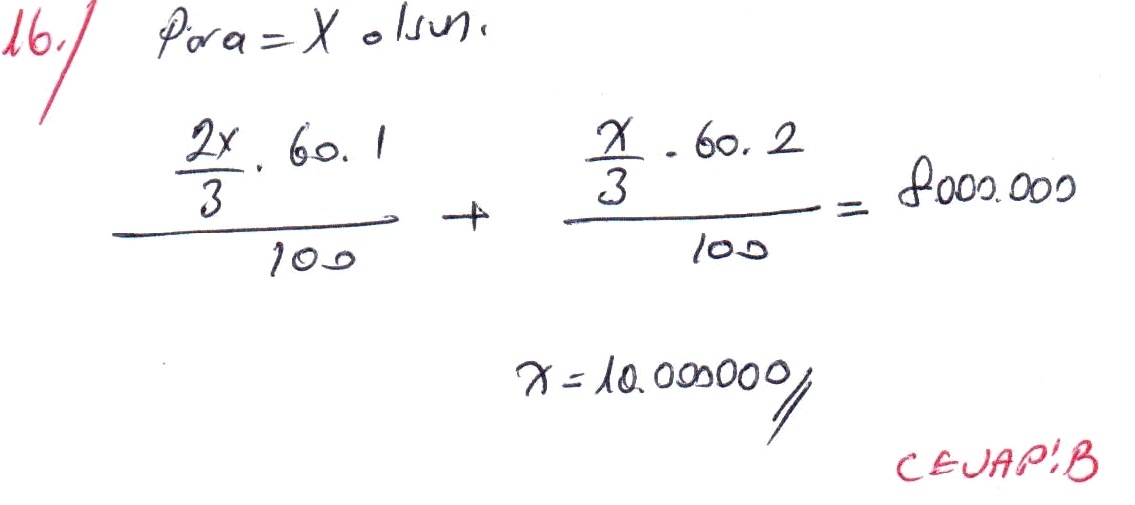 16./ Para = X olsun.
\frac{\frac{2x}{3} . 60. 1}{100} + \frac{\frac{x}{3} . 60. 2}{100} = 8000.000
x = 10.000000//
CEVAP: B